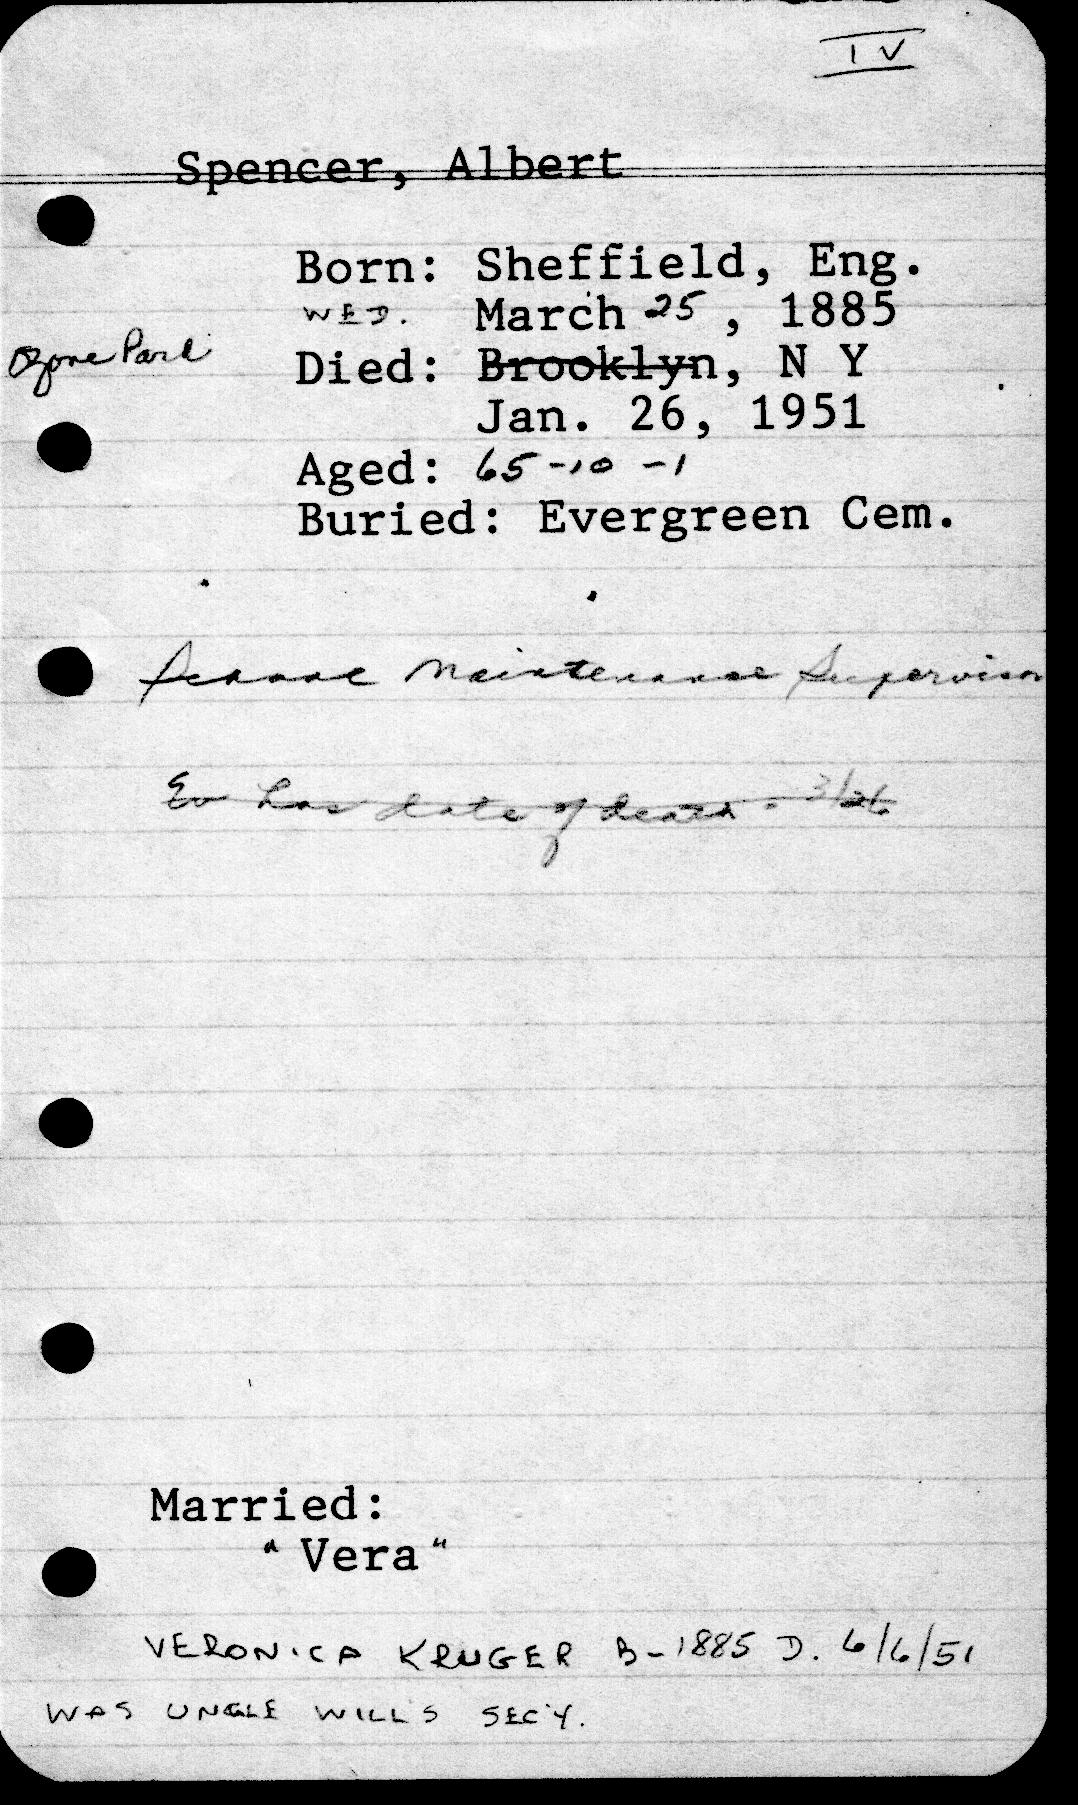 IV
Spencer, Albert
Born: Sheffield, Eng.
WED. March 25, 1885
Ozone Park
Died: Brooklyn, N Y
Jan. 26, 1951
Aged: 65-10-1
Buried: Evergreen Cem.
School Maintenance Supervisor
Ev has date of death - 3/26
Married:
"Vera"
VERONICA KRUGER B-1885 D. 6/6/51
WAS UNCLE WILL'S SEC'Y.